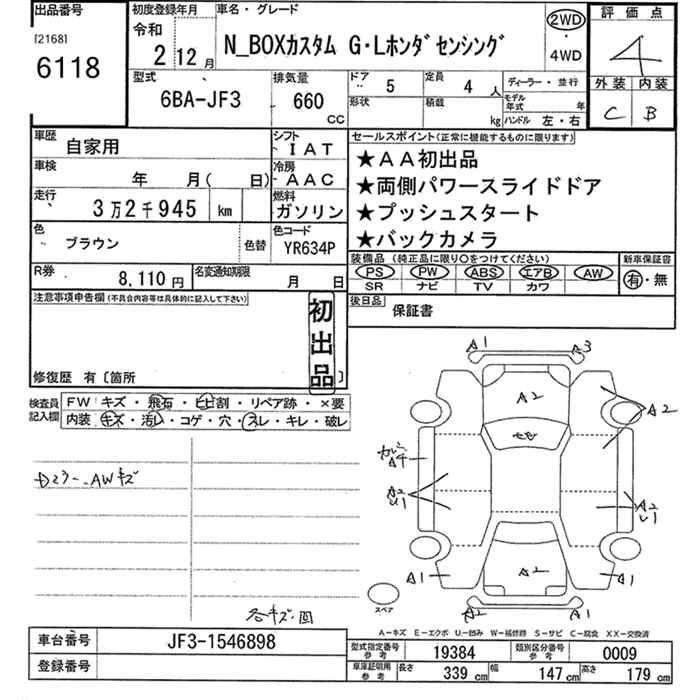 出品番号
[2168]
6118
初度登録年月
令和
2年12月
車名・グレード
N_BOXカスタム G・Lホンダセンシング
2WD
・
4WD
評価点
4
外装 内装
C B
型式
6BA-JF3
排気量
660
CC
ドア
5
定員
4人
形状
積載
kg
ディーラー・並行
モデル年式 年
ハンドル 左・右
車歴
自家用
シフト
IAT
車検
年 月( 日)
冷房
AAC
走行
3万2千945 km
燃料
ガソリン
色
ブラウン
色替
色コード
YR634P
R券
8,110円
名変通知期限
月 日
セールスポイント(正常に機能するものに限ります)
★AA初出品
★両側パワースライドドア
★プッシュスタート
★バックカメラ
装備品(純正品に限り○をつけてください)
新車保証書
PS PW ABS エアB AW
有・無
SR ナビ TV カワ
後日品
保証書
注意事項申告欄(不具合内容等は具体的に記入して下さい)
初出品
修復歴 有〔箇所 〕
検査員記入欄
FW キズ・飛石・ヒビ割・リペア跡・×要
内装 キズ・汚レ・コゲ・穴・スレ・キレ・破レ
AWキズ
各キズ・凹
A1
A3
A2
A2
A4
A2
U1
A2
U1
A1
A2
A1
A2
A1
スペア
A-キズ E-エクボ U-凹み W-補修跡 S-サビ C-腐食 XX-交換済
車台番号
JF3-1546898
登録番号
型式指定番号参考
19384
類別区分番号参考
0009
車庫証明用参考
長さ
339 cm
幅
147 cm
高さ
179 cm